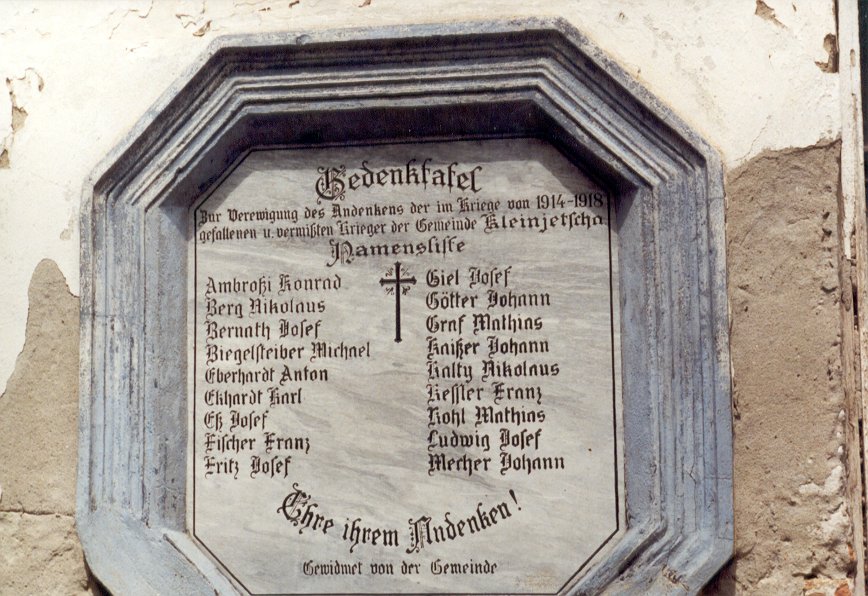 Gedenktafel
Zur Verewigung des Andenkens der im Kriege von 1914-1918
gefallenen u. vermißten Krieger der Gemeinde Kleinjetscha
Namensliste
Ambroßi Konrad
Berg Nikolaus
Bernath Josef
Biegelsteiber Michael
Eberhardt Anton
Ekhardt Karl
Eß Josef
Fischer Franz
Fritz Josef
Giel Josef
Götter Johann
Graf Mathias
Kaißer Johann
Kalty Nikolaus
Kessler Franz
Kohl Mathias
Ludwig Josef
Mecher Johann
Ehre ihrem Andenken!
Gewidmet von der Gemeinde